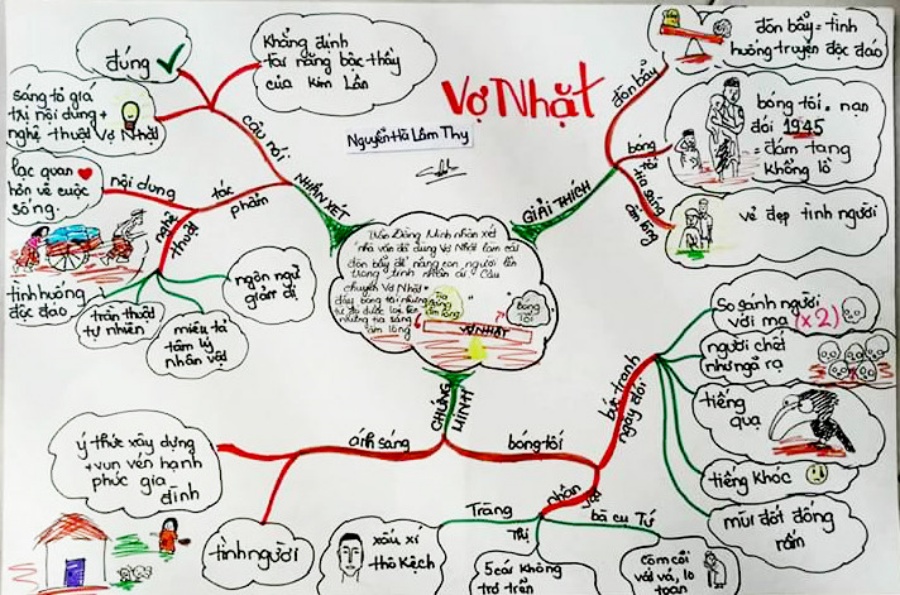 Vợ Nhặt
Nguyễn Hà Lâm Thy
Trần Đồng Minh nhận xét
"nhà văn đã dùng Vợ Nhặt làm cái
đòn bẩy để nâng con người lên
trong tình nhân ái. Câu
chuyện Vợ Nhặt
đầy bóng tối nhưng
từ đó được loé lên
những tia sáng
ấm lòng"
tia sáng
ấm lòng
bóng
tối
VỢ NHẶT
NHẬN XÉT
câu nói
đúng
Khẳng định
tài năng bậc thầy
của Kim Lân
sáng tỏ giá
trị nội dung +
nghệ thuật Vợ Nhặt
tác
phẩm
nội dung
lạc quan
hơn về cuộc
sống.
nghệ
thuật
tình huống
độc đáo
trần thuật
tự nhiên
miêu tả
tâm lý
nhân vật
ngôn ngữ
giản dị
GIẢI THÍCH
đòn bẩy
đòn bẩy = tình
huống truyện độc đáo
bóng
tối
bóng tối = nạn
đói 1945
= đám tang
khổng lồ
tia sáng
ấm lòng
vẻ đẹp tình người
CHỨNG
MINH
ánh sáng
ý thức xây dựng
+ vun vén hạnh
phúc gia
đình
tình người
bóng tối
bức tranh
ngày đói
So sánh người
với ma (x2)
người chết
như ngả rạ
tiếng
quạ
tiếng khóc
mùi đốt đống
rấm
nhân
vật
Tràng
xấu xí
thô kệch
Thị
5 cái không
trơ trẽn
bà cụ Tứ
Còm cõi
vất vả, lo
toan